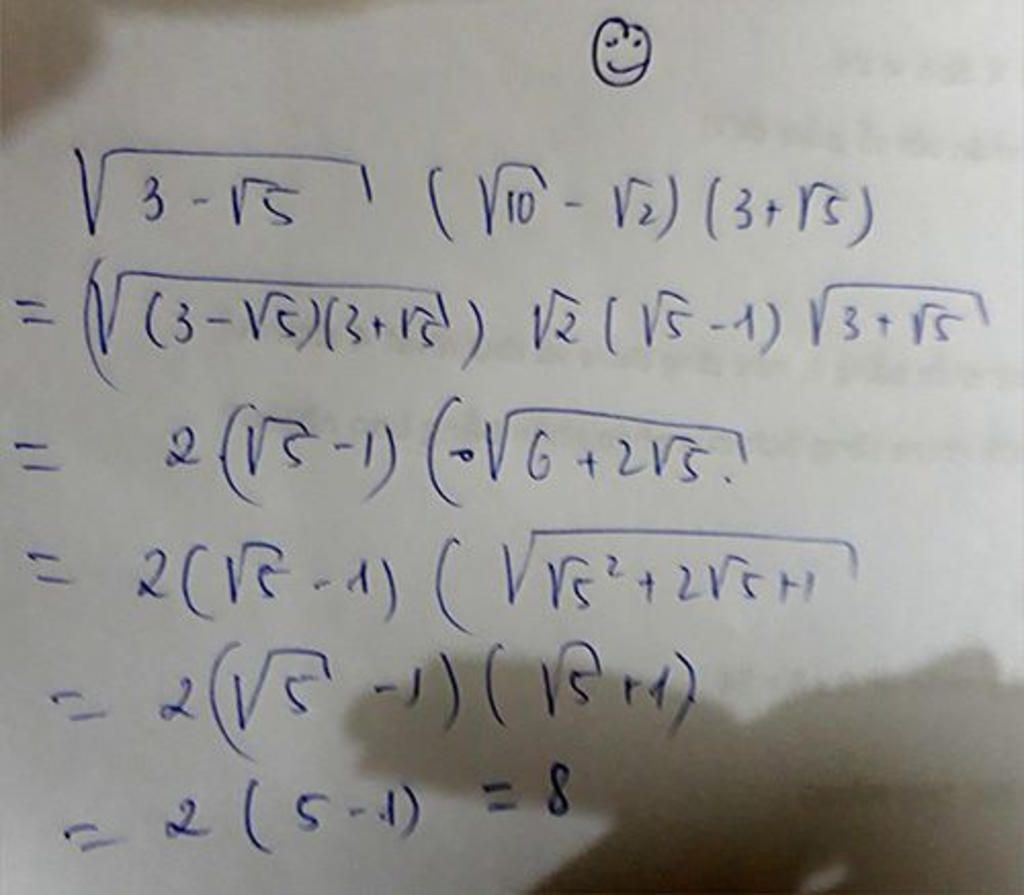 √(3 - √5) (√10 - √2) (3 + √5)
= (√((3 - √5)(3 + √5))) √2 (√5 - 1) √(3 + √5)
= 2 (√5 - 1) (√(6 + 2√5)
= 2 (√5 - 1) (√(√5² + 2√5 + 1)
= 2 (√5 - 1) (√5 + 1)
= 2 (5 - 1) = 8